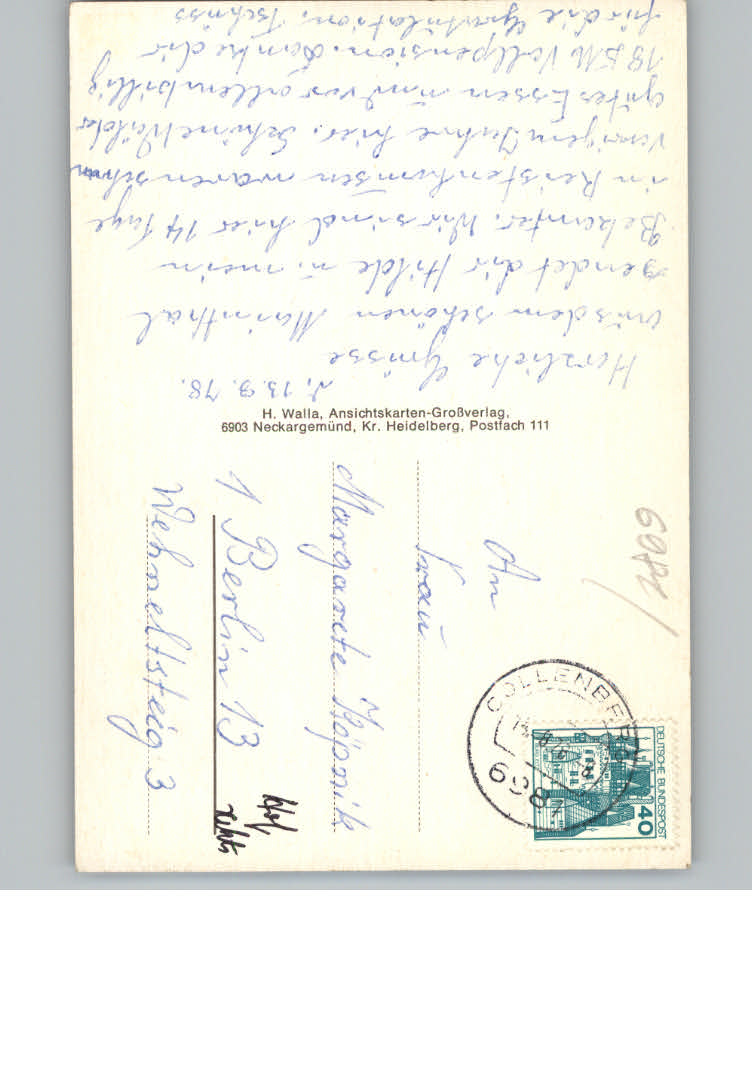 d. 13.9.78.
Herzliche Grüsse
aus dem schönen Mainthal
sendet dir Hilde u. mein
Bekanter. Wir sind hier 14 Tage
in Reistenhausen waren schon
vorigem Jahre hier. Schöne Wälder
gutes Essen und vor allem billig
18 DM Vollpension. Danke dir
für die Gratulation. Tschüss
H. Walla, Ansichtskarten-Großverlag,
6903 Neckargemünd, Kr. Heidelberg, Postfach 111
An
Frau
Margarete Köpnik
1 Berlin 13
Wehneltsteig 3
Hof
rechts
DEUTSCHE BUNDESPOST
40
COLLENBERG
6981